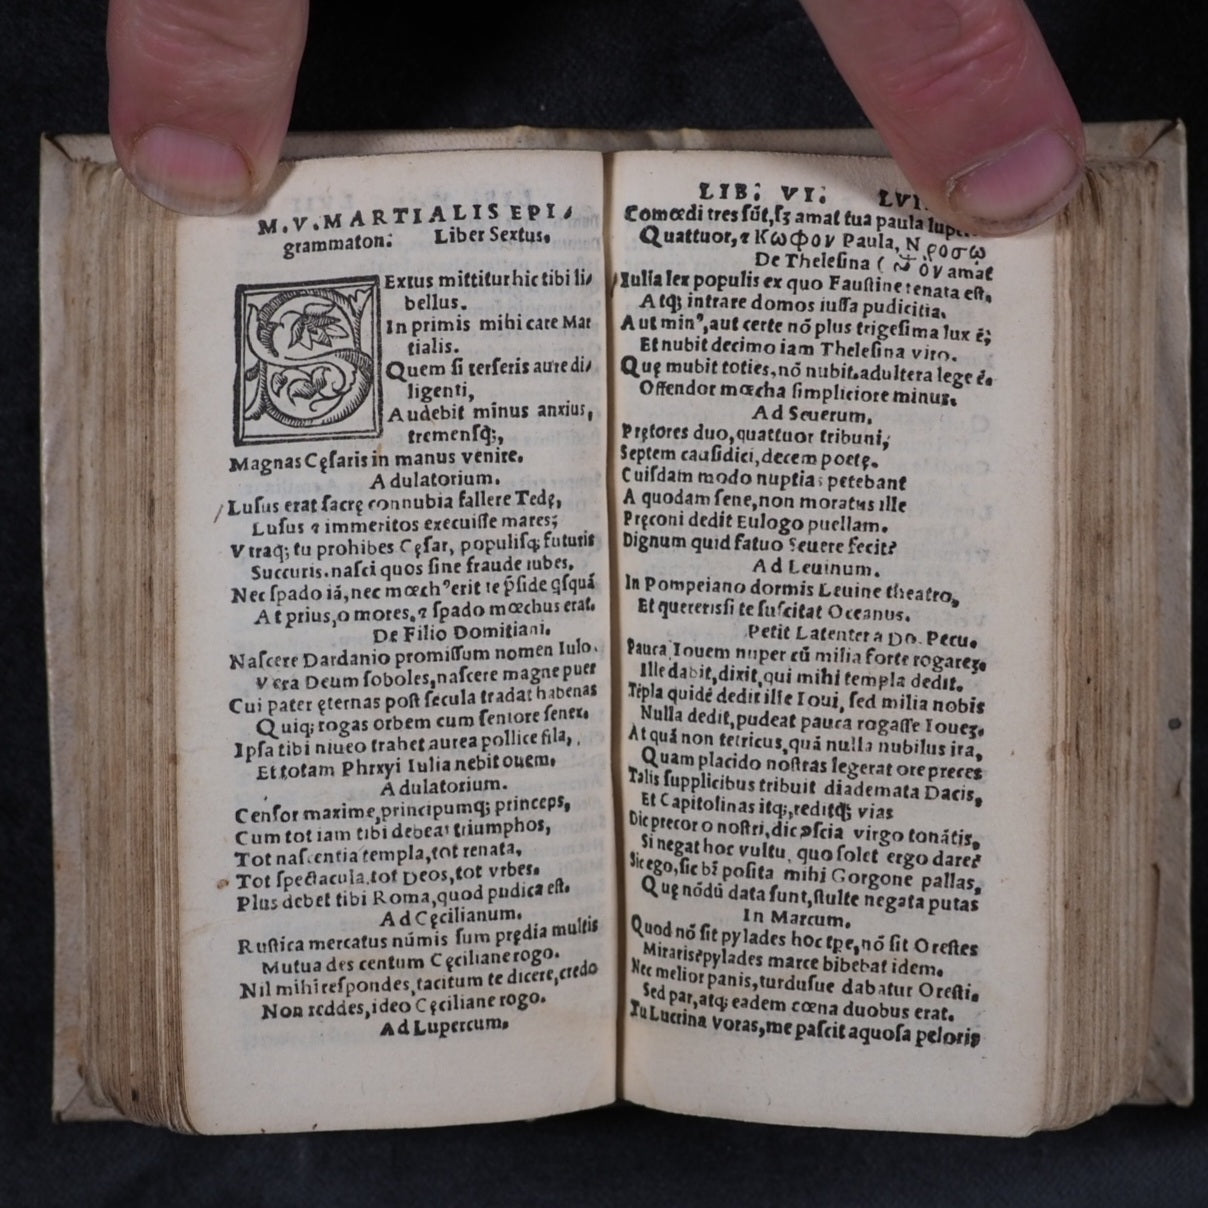 M. V. MARTIALIS EPI/
grammaton: Liber Sextus.
SExtus mittitur hic tibi li/
bellus.
In primis mihi care Mar
tialis.
Quem si terseris aure di/
ligenti,
Audebit minus anxius,
tremensq;,
Magnas Cęsaris in manus venire.
Adulatorium.
Lusus erat sacrę connubia fallere Tedę,
Lusus ⁊ immeritos execuisse mares;
Vtraq; tu prohibes Cęsar, populisq; futuris
Succuris. nasci quos sine fraude iubes,
Nec spado iā, nec mœchꝰ erit te p̄side qsquā
At prius, o mores, ⁊ spado mœchus erat.
De Filio Domitiani.
Nascere Dardanio promissum nomen Iulo.
Vera Deum soboles, nascere magne puer
Cui pater ęternas post secula tradat habenas
Quiq; rogas orbem cum seniore senex.
Ipsa tibi niueo trahet aurea pollice fila,
Et totam Phrxyi Iulia nebit ouem.
Adulatorium.
Censor maxime, principumq; princeps,
Cum tot iam tibi debeat triumphos,
Tot nascentia templa, tot renata,
Tot spectacula. tot Deos, tot vrbes.
Plus debet tibi Roma, quod pudica est.
Ad Cęcilianum.
Rustica mercatus nūmis sum prędia multis
Mutua des centum Cęciliane rogo.
Nil mihi respondes, tacitum te dicere, credo
Non reddes, ideo Cęciliane rogo.
Ad Lupercum,
LIB: VI: LVI
Comœdi tres sūt, sꝫ amat tua paula
Quattuor, ⁊ Κωφον Paula, N ροσω
De Thelesina ( ὸν amat
Iulia lex populis ex quo Faustine renata est,
Atq; intrare domos iussa pudicitia.
Aut minꝰ, aut certe nō plus trigesima lux ē;
Et nubit decimo iam Thelesina viro.
Quę mubit toties, nō nubit. adultera lege ē.
Offendor mœcha simpliciore minus.
Ad Seuerum.
Prętores duo, quattuor tribuni,
Septem causidici, decem poetę.
Cuisdam modo nuptias petebant
A quodam sene, non moratus ille
Pręconi dedit Eulogo puellam.
Dignum quid fatuo Seuere fecit?
Ad Leuinum.
In Pompeiano dormis Leuine theatro,
Et quereris si te suscitat Oceanus.
Petit Latenter a Do. Pecu.
Pauca Iouem nuper cū milia forte rogareꝫ.
Ille dabit, dixit, qui mihi templa dedit.
Tēpla quidē dedit ille Ioui, sed milia nobis
Nulla dedit, pudeat pauca rogasse Ioueꝫ.
At quā non tetricus, quā nulla nubilus ira,
Quam placido nostras legerat ore preces
Talis supplicibus tribuit diademata Dacis,
Et Capitolinas itq;, reditq; vias
Dic precor o nostri, dic ꝯscia virgo tonātis,
Si negat hoc vultu, quo solet ergo dare?
Sic ego, sic bī posita mihi Gorgone pallas,
Quę nōdū data sunt, stulte negata putas
In Marcum.
Quod nō sit pylades hoc tpe, nō sit Orestes
Miraris? pylades marce bibebat idem.
Nec melior panis, turdusue dabatur Oresti.
Sed par, atq; eadem cœna duobus erat.
Tu Lucrina voras, me pascit aquosa peloris